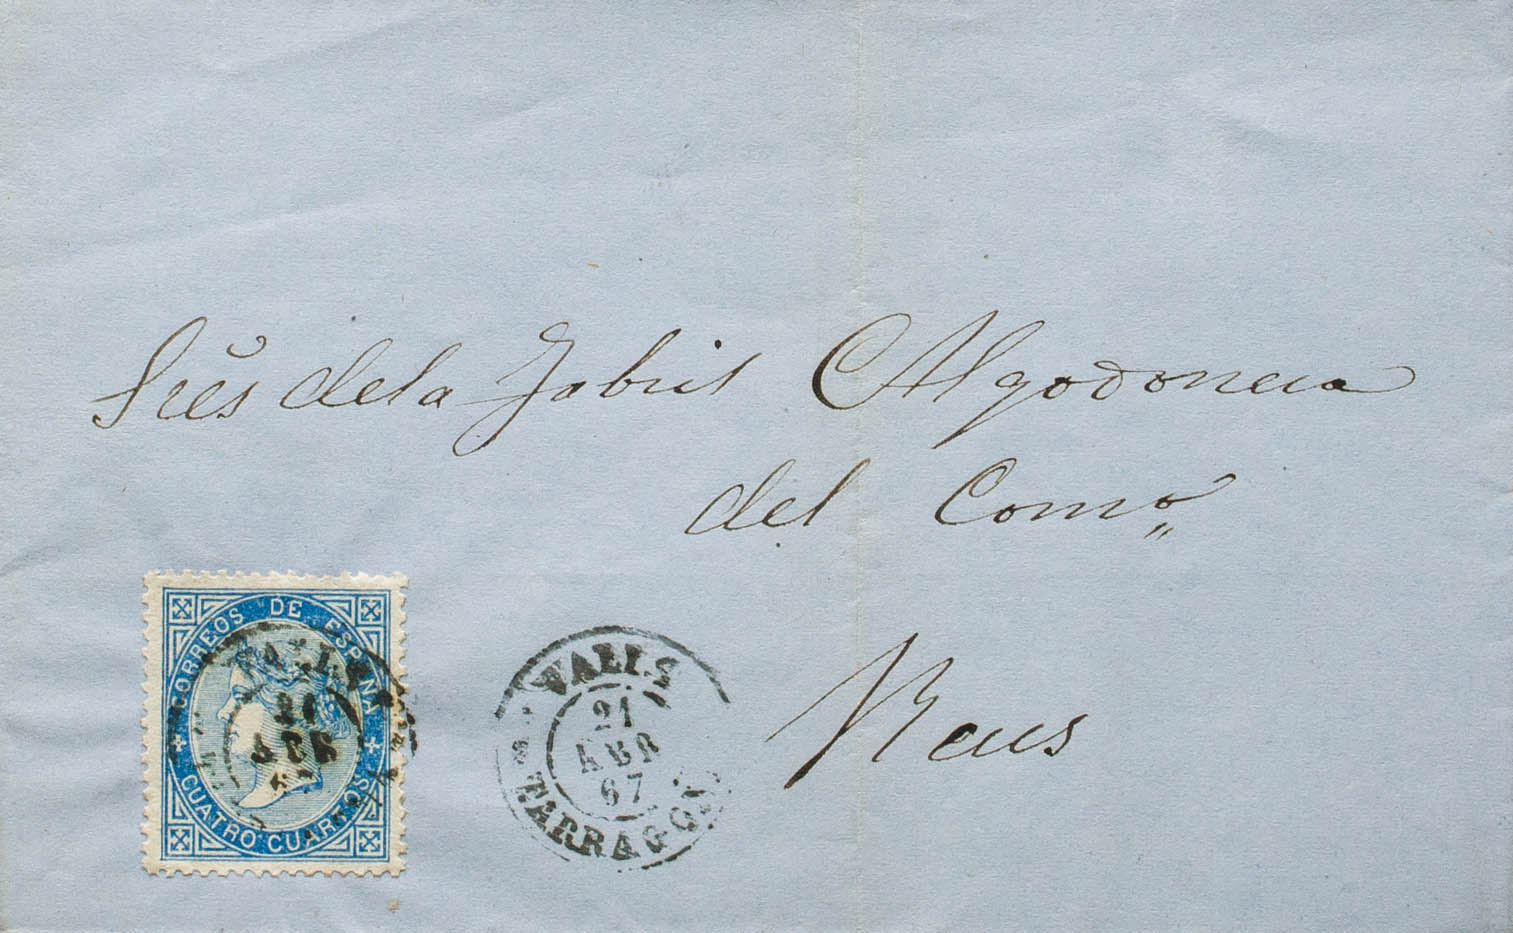 Sres de la Fabril Algodonera
del Como
Reus
CORREOS DE ESPAÑA
CUATRO CUARTOS
VALLS
21
ABR
VALLS
21
ABR
67
TARRAGONA